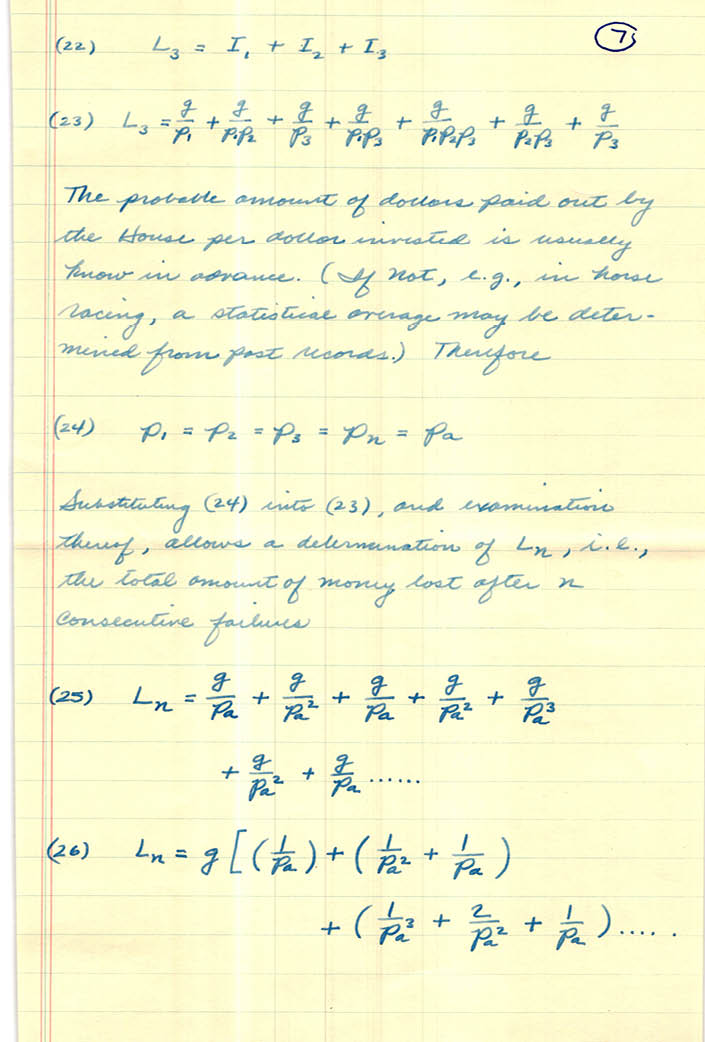 7
(22) L₃ = I₁ + I₂ + I₃
(23) L₃ = g/p₁ + g/p₁p₂ + g/p₃ + g/p₁p₃ + g/p₁p₂p₃ + g/p₂p₃ + g/p₃
The probable amount of dollars paid out by
the House per dollar invested is usually
know in advance. (If not, e.g., in horse
racing, a statistical average may be deter-
mined from past records.) Therefore
(24) p₁ = p₂ = p₃ = pn = pa
Substituting (24) into (23), and examination
thereof, allows a determination of Ln, i.e.,
the total amount of money lost after n
consecutive failures
(25) Ln = g/pa + g/pa² + g/pa + g/pa² + g/pa³
+ g/pa² + g/pa ......
(26) Ln = g [(1/pa) + (1/pa² + 1/pa)
+ (1/pa³ + 2/pa² + 1/pa) .....